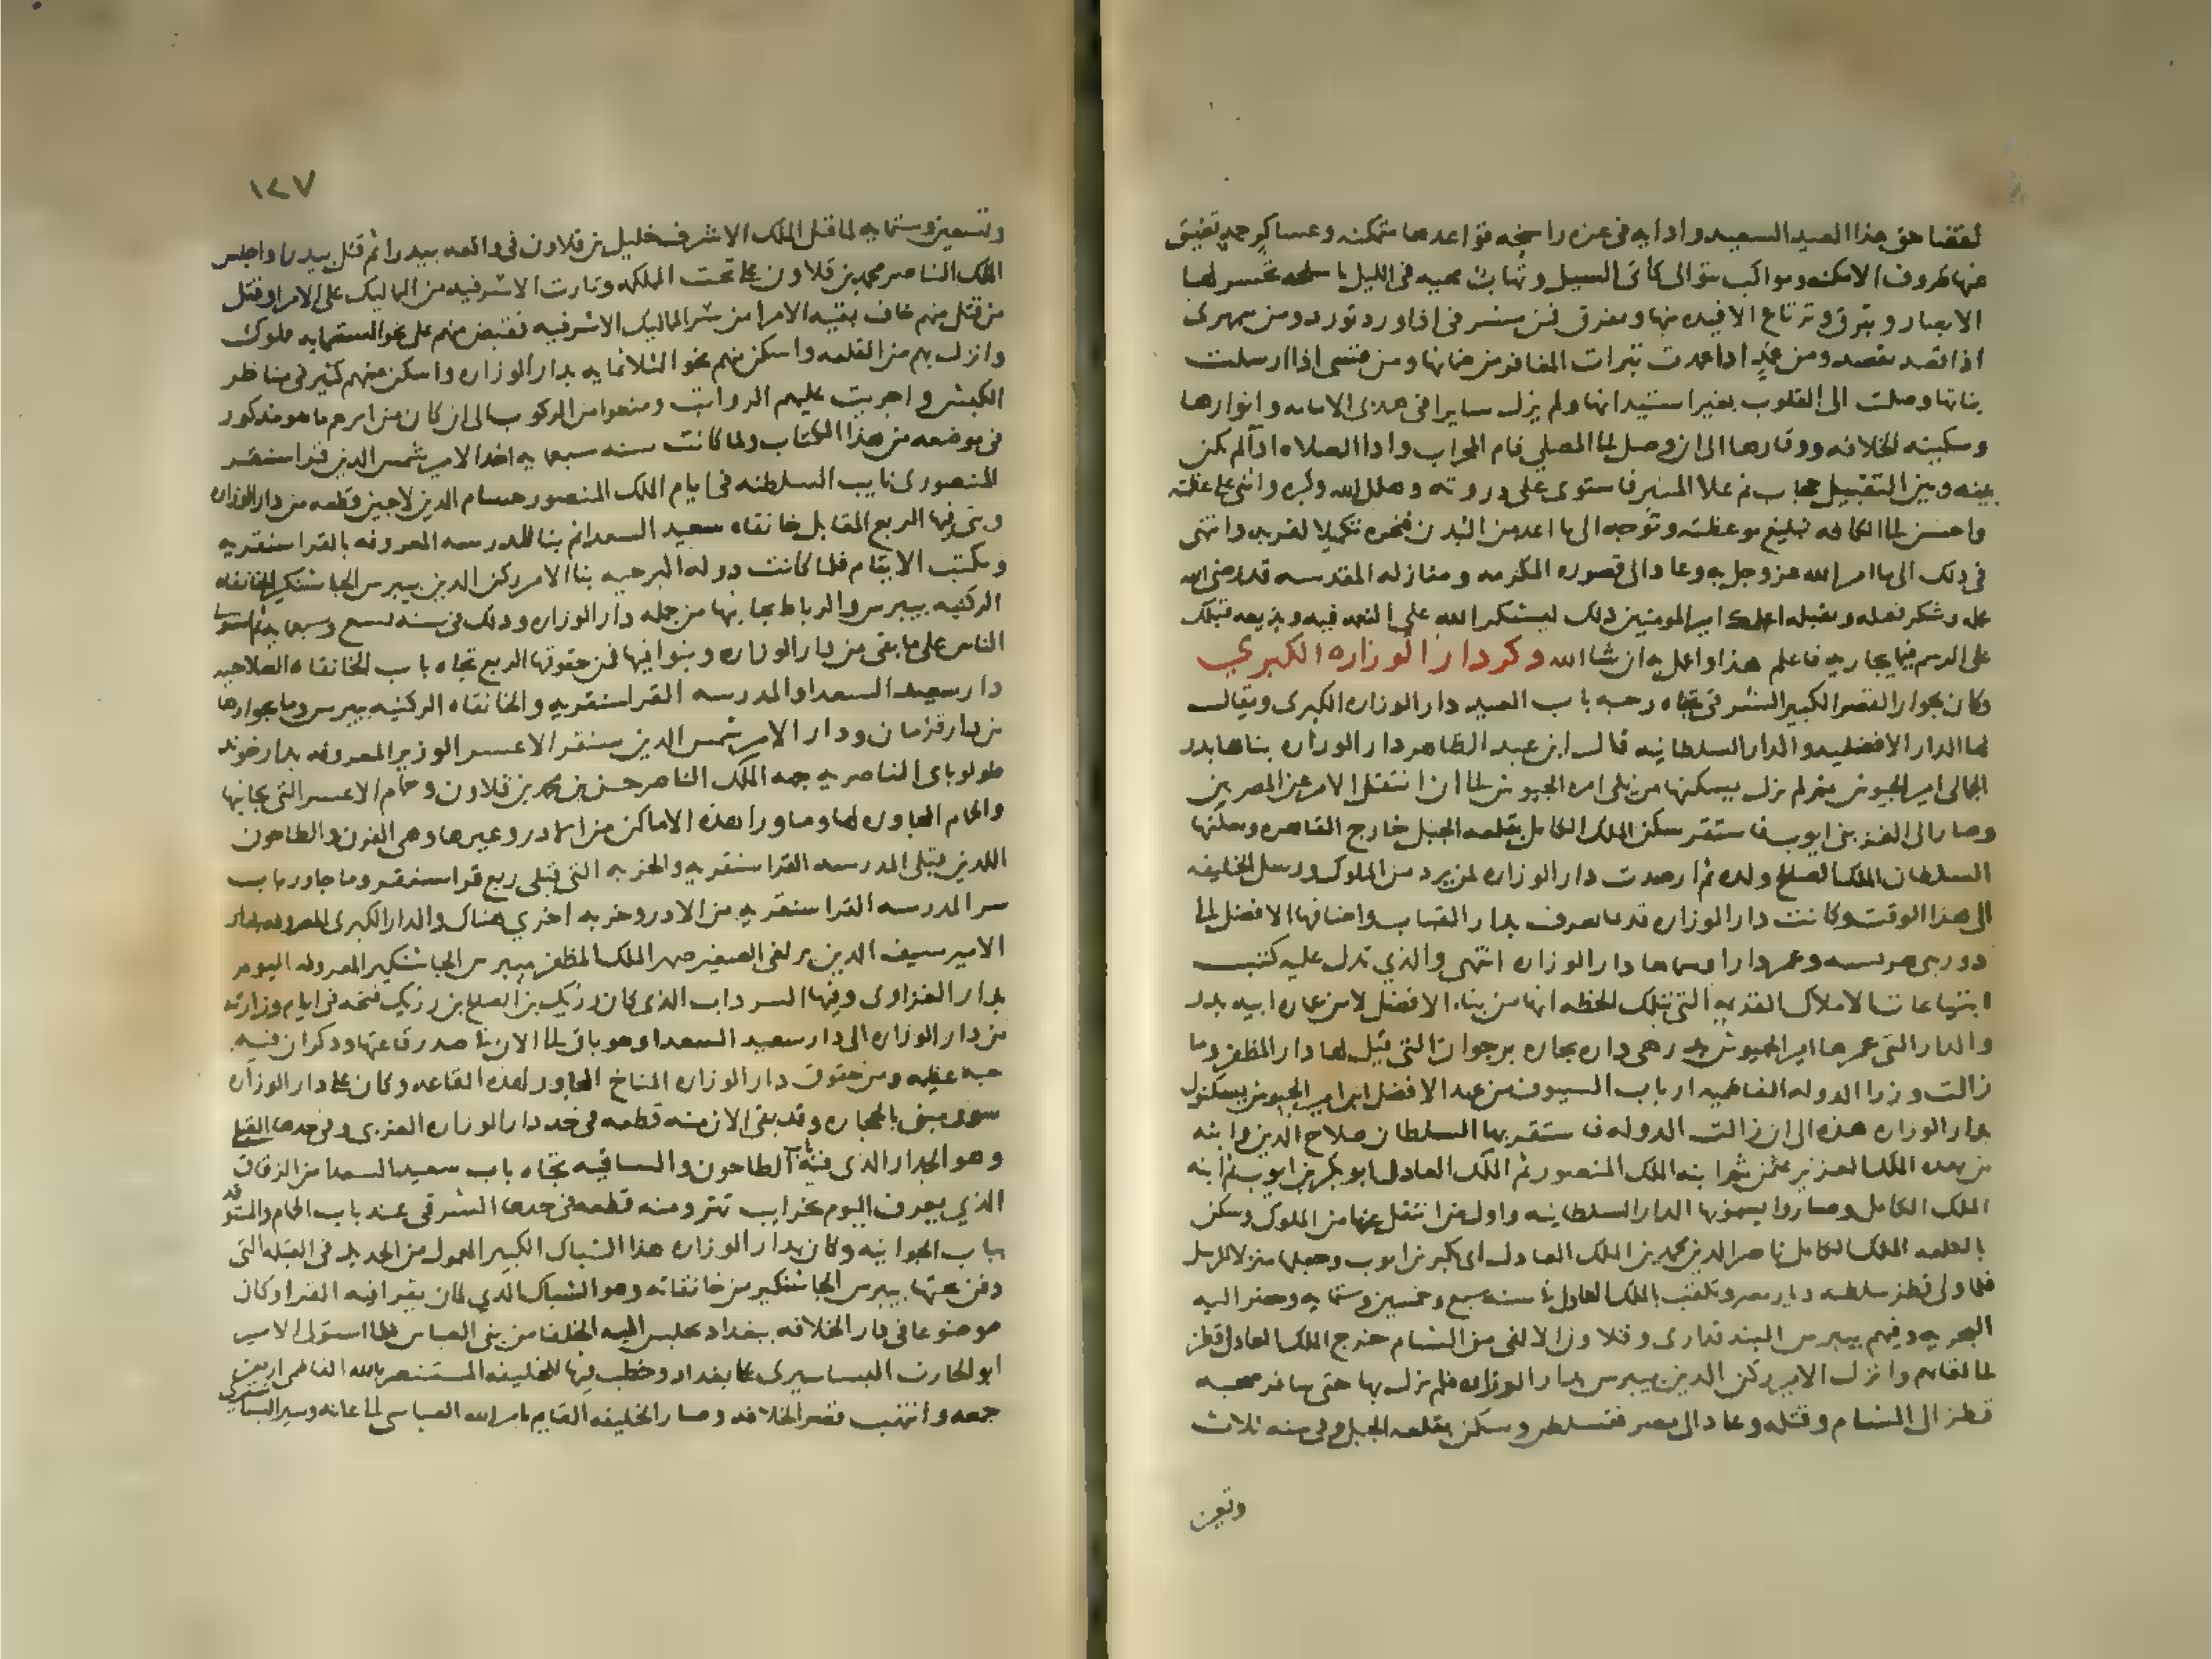 لقضا حق هذا العيد السعيد وادابه في عزه راسخه قواعدها متمكنه وعساكر جمه تضيق
عنها ظروف الامكنه ومواكب تتوالى كاتى السيل وتهاب هيبه مجيه في الليل باسلحه تحسر لها
الابصار وتبرق وترتاع الافيده منها وتفرق فمن مشرفى اذا ورد تورد ومن سمهرى
اذا قصد تقصد ومن عمد اذا عمدت تبرات المغافر من ضمانها ومن قسى اذا ارسلت
بنانها وصلت الى القلوب بغير استيذانها ولم يزل سايرا في هدى الامامه وانوارها
وسكينه الخلافه ووقارها الى ان وصل الى المصلى قدام المحراب وادا الصلاه اذ لم يكن
بينه وبين التقبيل حجاب ثم علا المنبر فاستوى على دروته وهلل الله وكبره واثنى على عظمته
واحسن الى الكافه بتبليغ موعظته وتوجه الى ما اعد من البدن فنحره تكميلا لقربه وانتهى
في ذلك الى ما امر الله عز وجل به وعاد الى قصوره المكرمه ومنازله المقدسه قد رضى الله
عمله وشكر فعله وتقبله اعلمك امير المومنين ذلك لتشكر الله على النعمه فيه وتذيعه قبلك
على الرسم فيما يجاريه فاعلم هذا واعمل به ان شا الله وذكر دار الوزاره الكبري
وكان بجوار القصر الكبير الشرقى تجاه رحبه باب العيد دار الوزاره الكبرى ويقال
لها الدار الافضليه والدار السلطانيه قال ابن عبد الظاهر دار الوزاره بناها بدر
الجمالى امير الجيوش ثم لم يزل يسكنها من يلى امره الجيوش الى ان انتقل الامر عن المصريين
وصار الى الغز بنى ايوب فاستقر سكن الملك الكامل بقلعه الجبل خارج القاهره وسكنها
السلطان الملك الصالح ولده ثم ارصدت دار الوزاره لمن يرد من الملوك ورسل الخليفه
الى هذا الوقت وكانت دار الوزاره قديما تعرف بدار القباب واضافها الافضل الى
دور بنى هريسه وعمرها دارا وسماها دار الوزاره انتهى والذي تدل عليه كتب
ابتياعات الاملاك القديمه التى بتلك الخطه انها من بناء الافضل لا من عماره ابيه بدر
والدار التى عمرها امير الجيوش بدر هى داره بحاره برجوان التى قيل لها دار المظفر وما
زالت وزرا الدوله الفاطميه ارباب السيوف من عهد الافضل ابن امير الجيوش يسكنون
بدار الوزاره هذه الى ان زالت الدوله فاستقر بها السلطان صلاح الدين وابنه
من بعده الملك العزيز عثمن ثم ابنه الملك المنصور ثم الملك العادل ابو بكر بن ايوب ثم ابنه
الملك الكامل وصاروا يسمونها الدار السلطانيه واول من انتقل عنها من الملوك وسكن
بالقلعه الملك الكامل ناصر الدين محمد بن الملك العادل ابى بكر بن ايوب وجعلها منزلا للرسل
فلما ولى قطز سلطنه ديار مصر وتلقب بالملك العادل في سنه سبع وخمسين وستمايه وحضر اليه
البحريه وفيهم بيبرس البندقدارى وقلاوون الالفى من الشام خرج الملك العادل قطز
لملقاهم وانزل الامير ركن الدين بيبرس بدار الوزاره فلم يزل بها حتى سافر صحبه
قطز الى الشام وقتله وعاد الى مصر فتسلطن وسكن بقلعه الجبل وفى سنه ثلاث
وتسعين
١٢٧
وتسعين وستمايه لما قتل الملك الاشرف خليل بن قلاون في واقعه بيدرا ثم قتل بيدرا واجلس
الملك الناصر محمد بن قلاون على تحت المملكه وثارت الاشرفيه من المماليك على الامرا وقتل
من قتل منهم خاف بقيه الامرا من شر المماليك الاشرفيه فقبض منهم على نحو الستمايه مملوك
وانزل بهم من القلعه واسكن منهم نحو الثلاثمايه بدار الوزاره واسكن منهم كثير في مناظر
الكبش واجريت عليهم الرواتب ومنعوا من الركوب الى ان كان من امرهم ما هو مذكور
في موضعه من هذا الكتاب ولما كانت سنه سبعمايه اخذ الامير شمس الدين قرا سنقر
المنصورى نايب السلطنه في ايام الملك المنصور حسام الدين لاجين قطعه من دار الوزاره
وبنى فيها الربع المقابل خانقاه سعيد السعدا ثم بنا المدرسه المعروفه بالقراسنقريه
ومكتب الايتام فلما كانت دوله البرجيه بنا الامير ركن الدين بيبرس الجاشنكير الخانقاه
الركنيه بيبرس والرباط بجانبها من جمله دار الوزاره وذلك في سنه تسع وسبعمايه ثم استولى
الناس على ما بقى من دار الوزاره وبنوا فيها فمن حقوقها الربع تجاه باب الخانقاه الصلاحيه
دار سعيد السعدا والمدرسه القراسنقريه والخانقاه الركنيه بيبرس وما بجوارها
من دار قزمان ودار الامير شمس الدين سنقر الاعسر الوزير المعروفه بدار خوند
طولوباى الناصريه جهه الملك الناصر حسن بن محمد بن قلاون وحمام الاعسر التى بجانبها
والحمام المجاوره لها وما ورا هذه الاماكن من الادر وغيرها وهى الفرن والطاحون
اللذين قبلى المدرسه القراسنقريه والخربه التى قبلى ربع قراسنقر وما جاور باب
سر المدرسه القراسنقريه من الادر وخربه اخري هناك والدار الكبرى المعروفه بدار
الامير سيف الدين برلغى الصغير صهر الملك المظفر بيبرس الجاشنكير المعروفه اليوم
بدار الغزاوى وفيها السرداب الذى كان رزيك بن الصالح بن رزيك فتحه في ايام وزارته
من دار الوزاره الى دار سعيد السعدا وهو باق الى الان فى صدر قاعتها وذكر ان فيه
حيه عظيمه ومن حقوق دار الوزاره المناخ المجاور لهذه القاعه وكان على دار الوزاره
سور مبنى بالحجاره وقد بقى الان منه قطعه في حد دار الوزاره الغربى وفى حدها القبلى
وهو الجدار الذى فيه باب الطاحون والساقيه تجاه باب سعيد السعدا من الزقاق
الذي يعرف اليوم بخرايب تتر ومنه قطعه في حدها الشرقى عند باب الحمام والمستوقد
بباب الجوانيه وكان بدار الوزاره هذا الشباك الكبير المعمول من الحديد فى القبه التى
دفن تحتها بيبرس الجاشنكير من خانقاته وهو الشباك الذي كان يقرا فيه القرا وكان
موضوعا في دار الخلافه ببغداد يجلس فيه الخلفا من بنى العباس فلما استولى الامير
ابو الحارث البساسيرى على بغداد وخطب فيها للخليفه المستنصر بالله الفاطمى اربعين
جمعه وانتهب قصر الخلافه وصار الخليفه القايم بامر الله العباسى الى عانه وسير البساسيرى